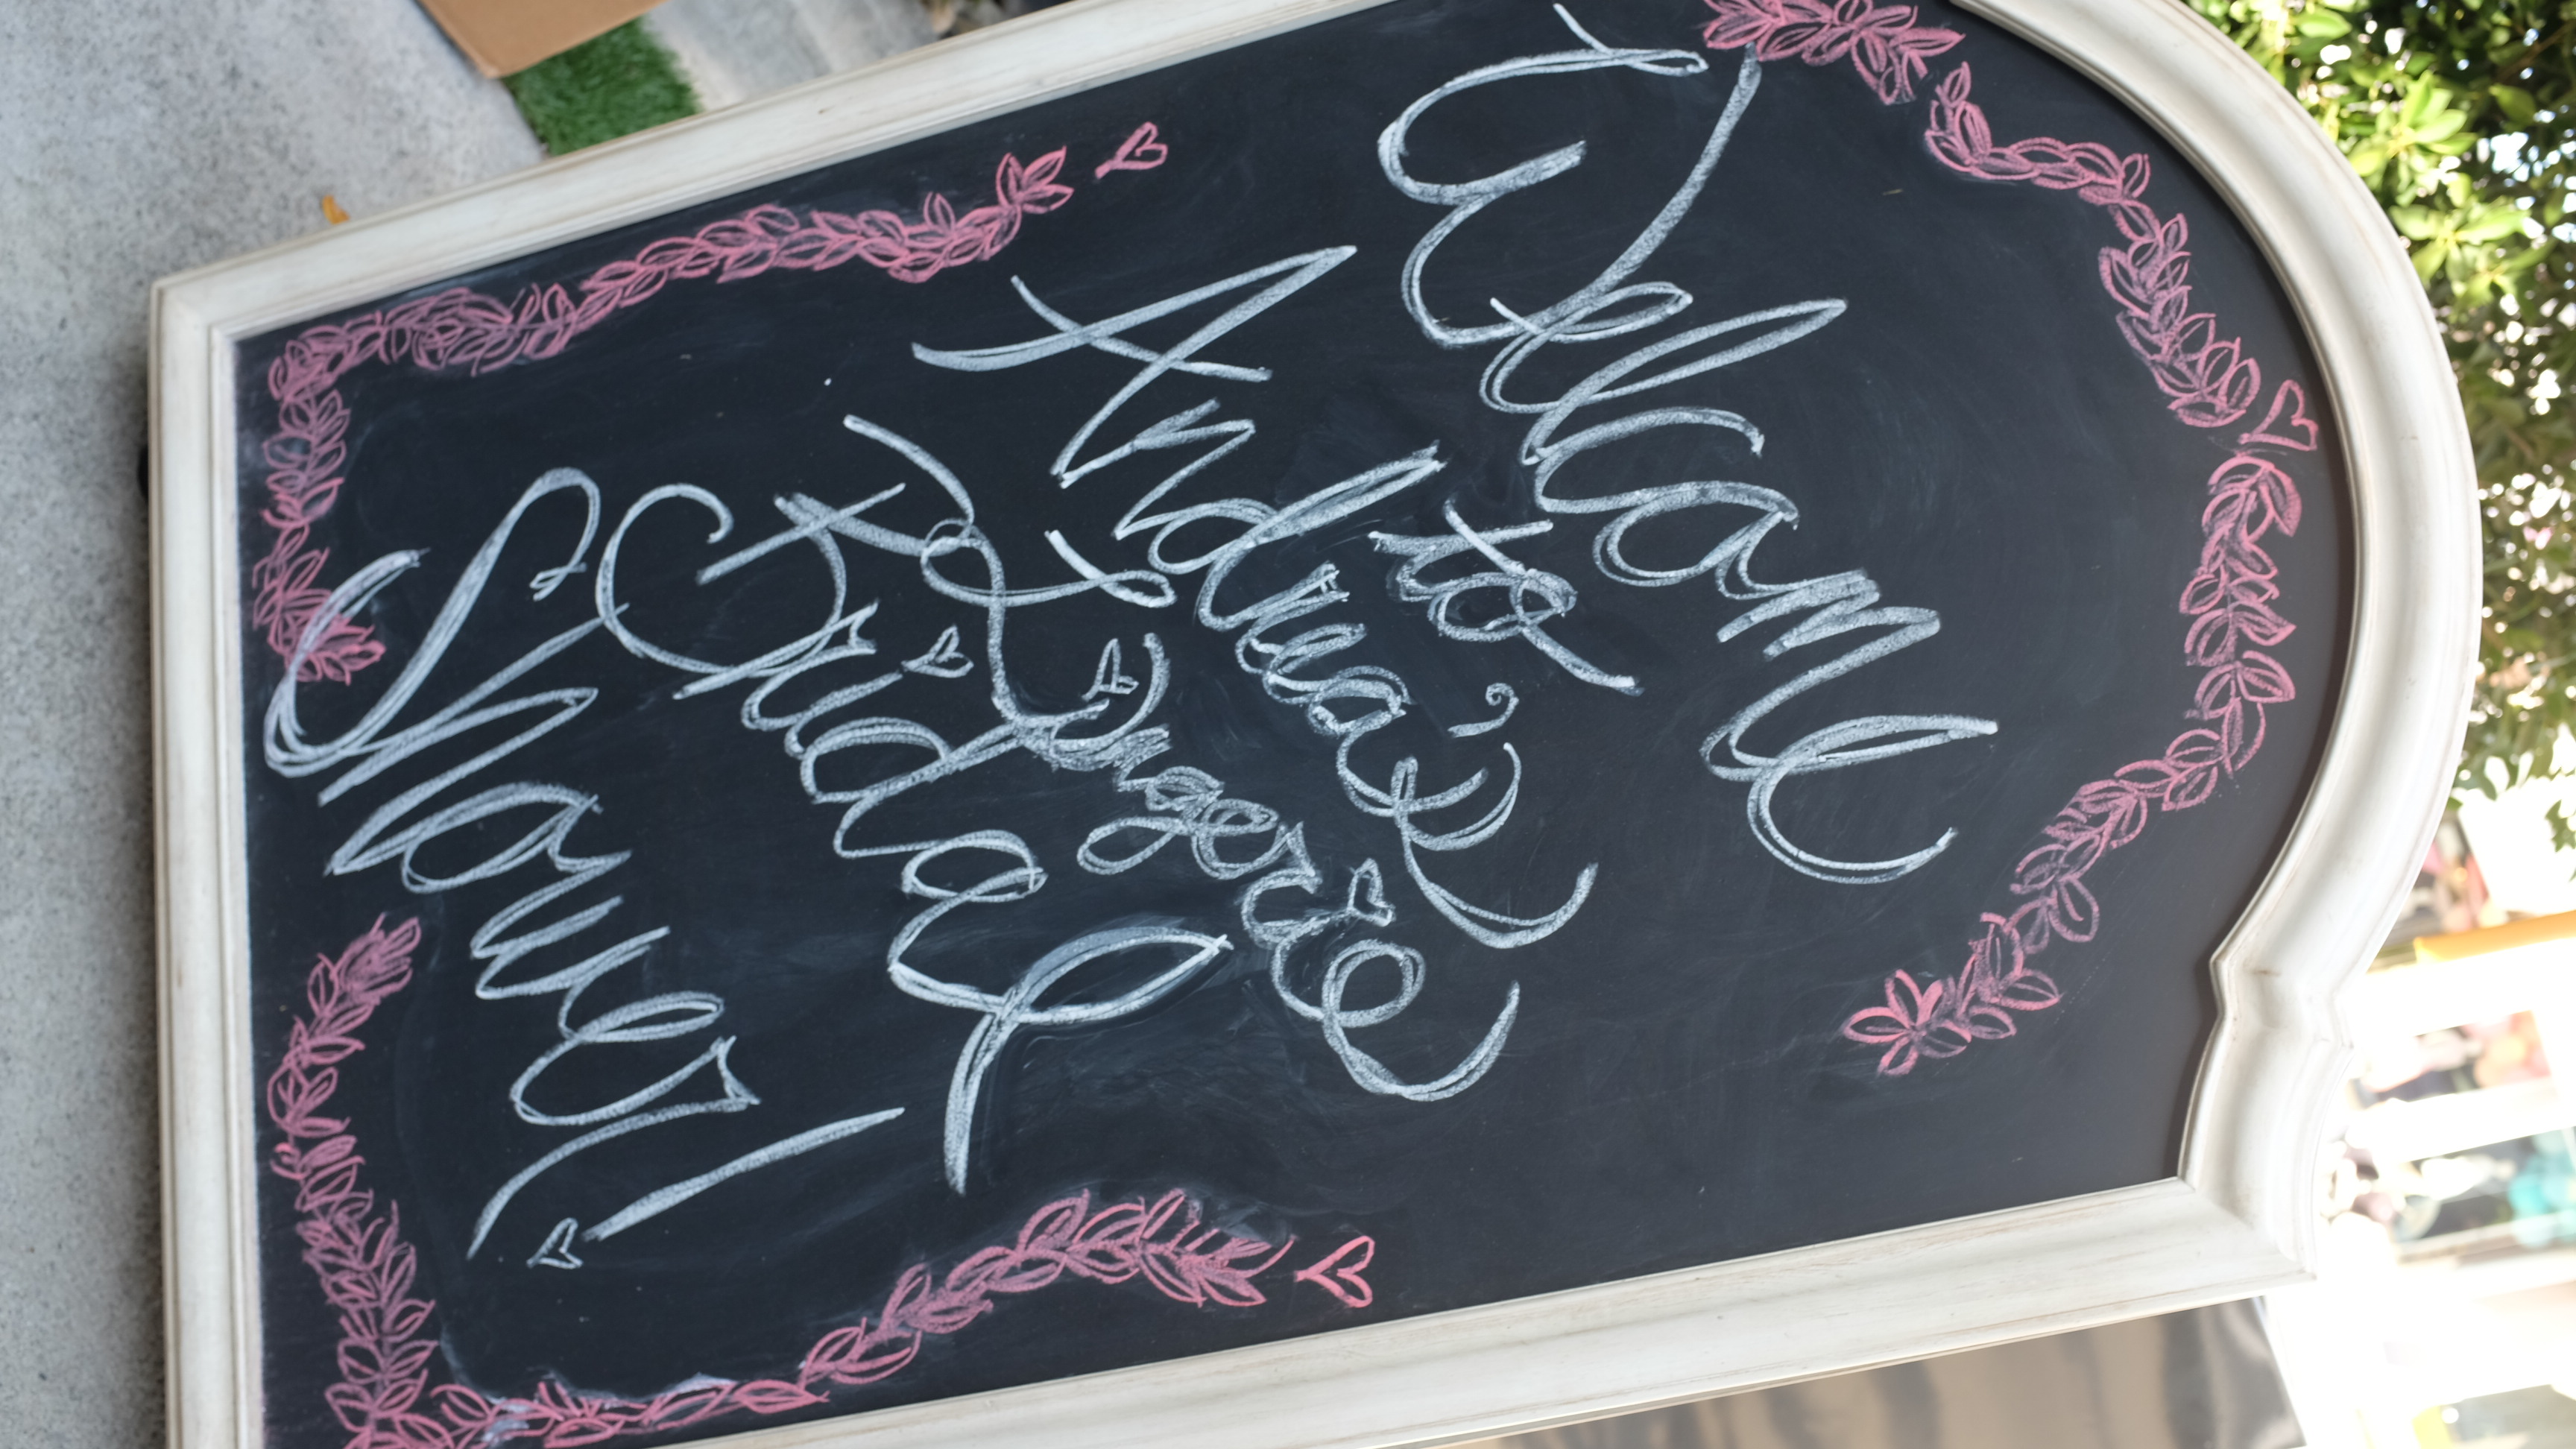 Welcome
to
Andrea's
Lingerie
&
Bridal
Shower!